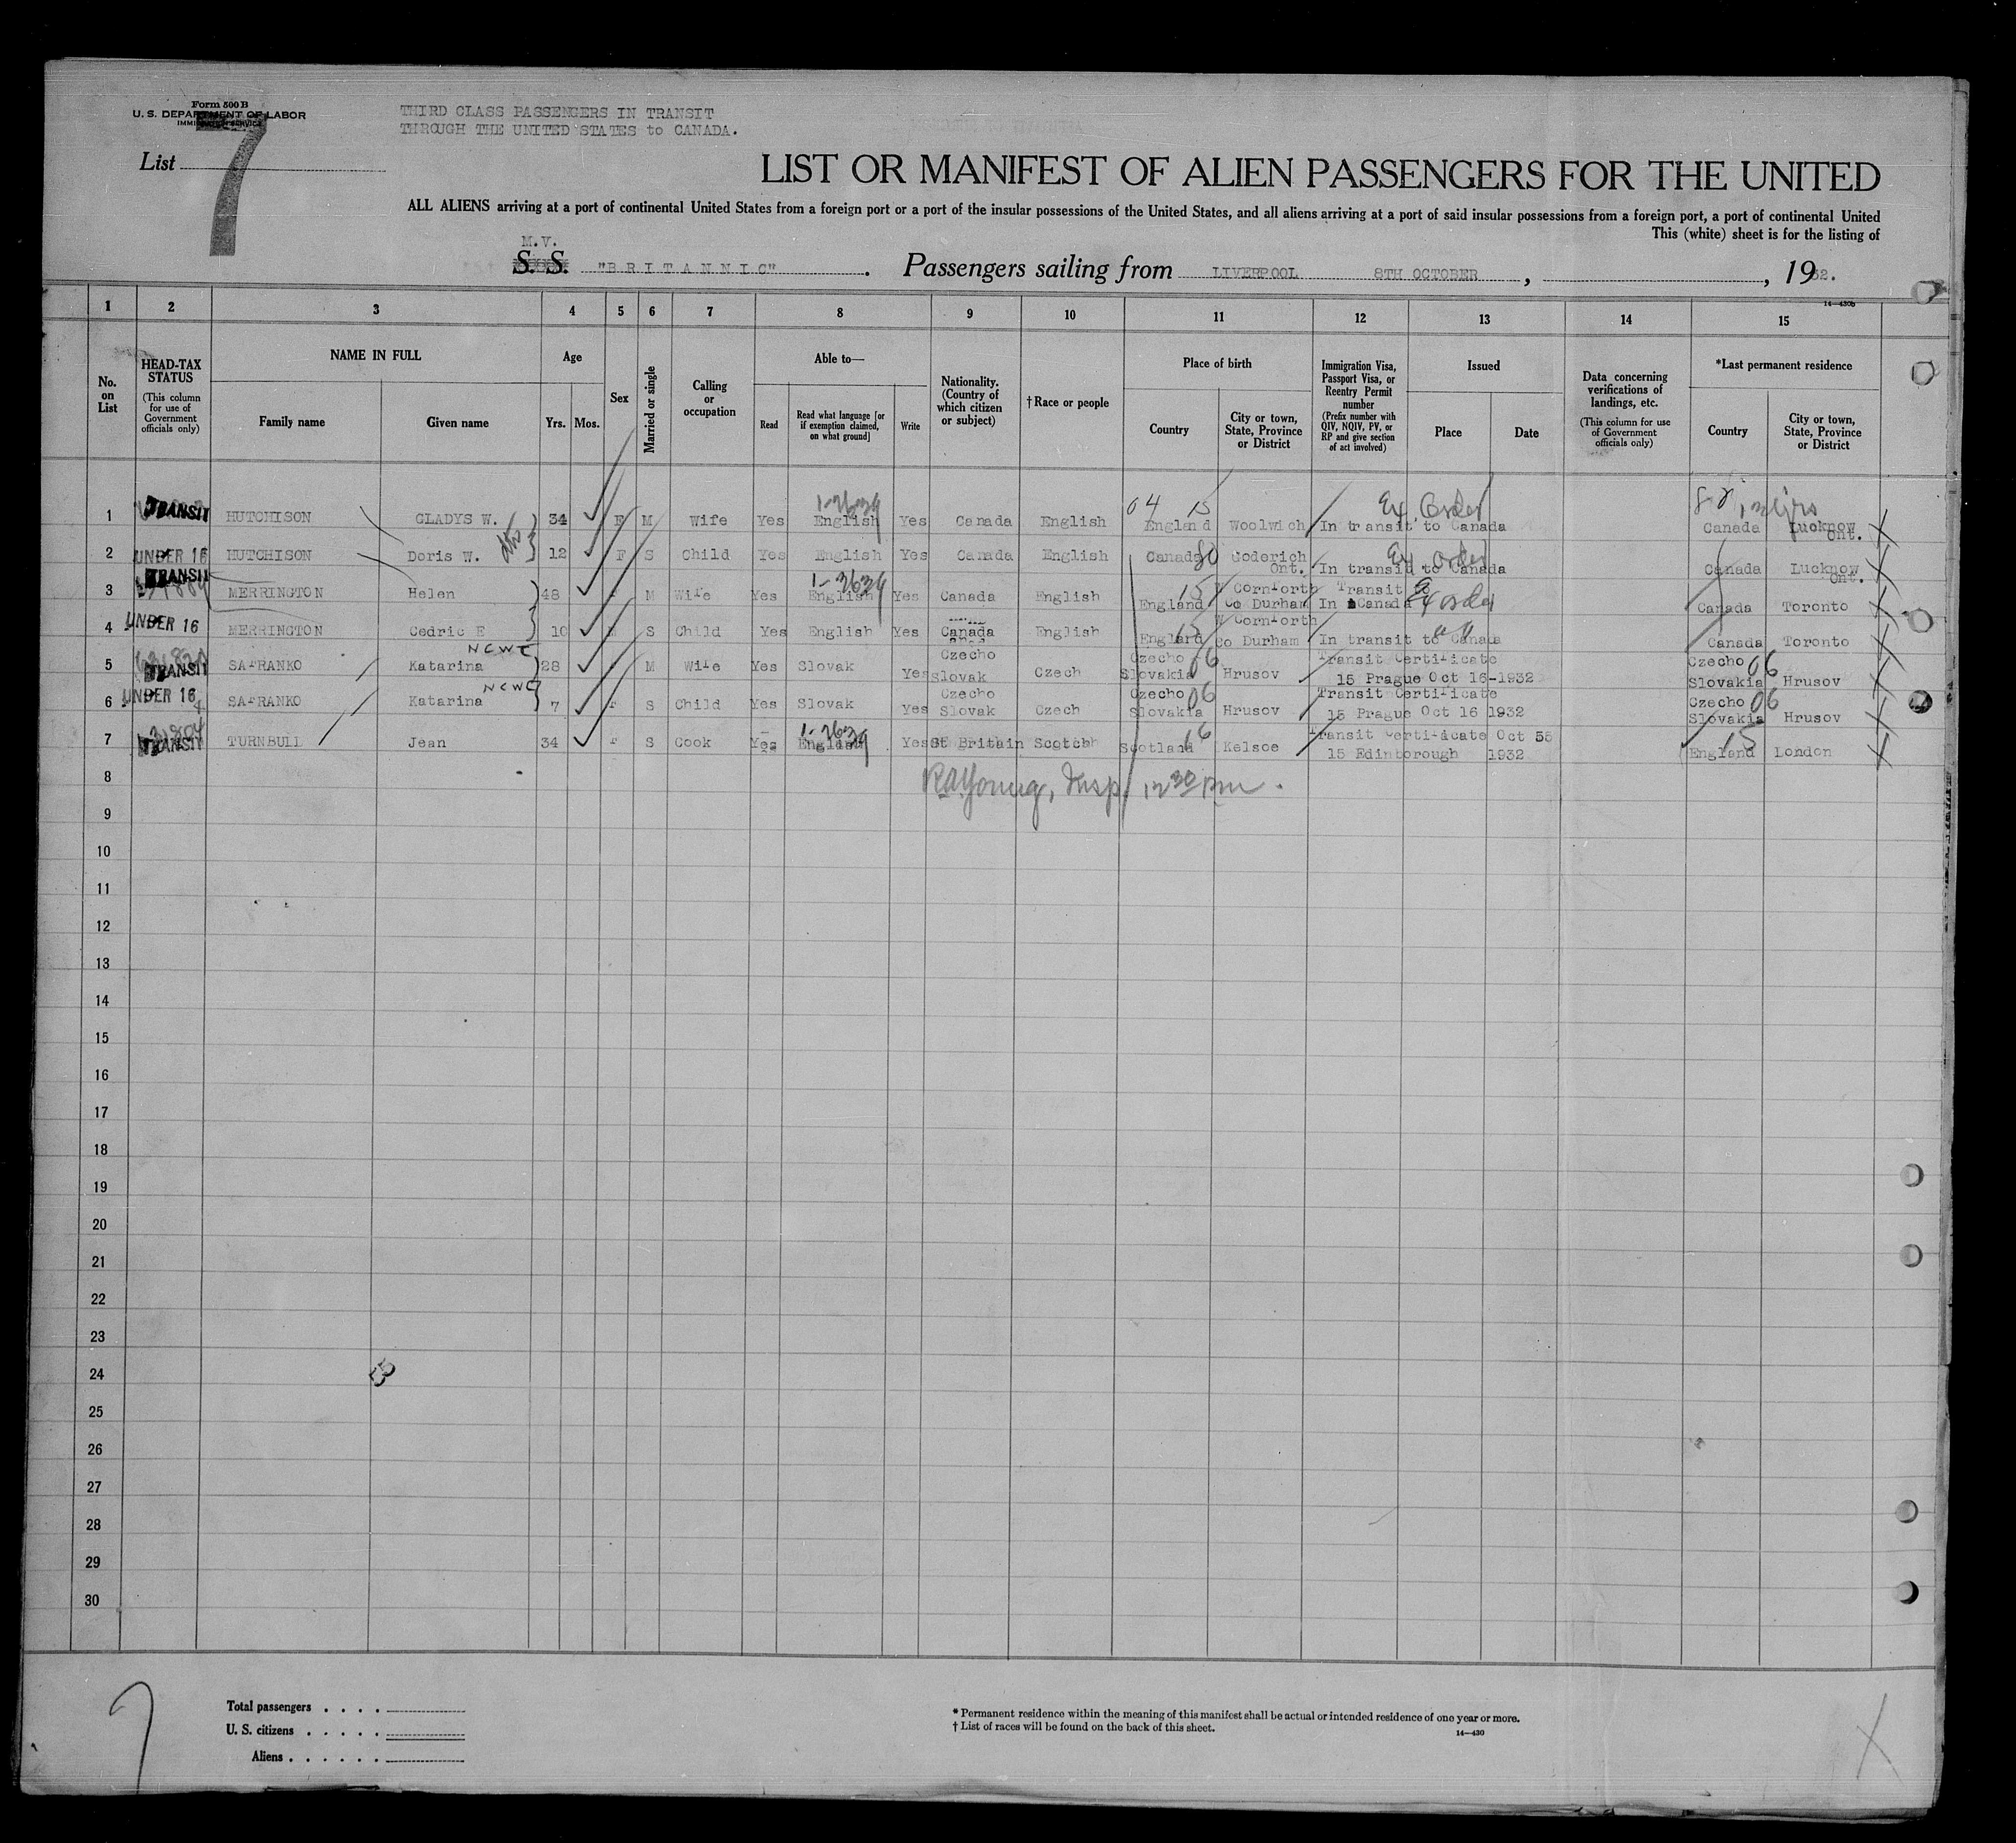 Form 500 B
U. S. DEPARTMENT OF LABOR
THIRD CLASS PASSENGERS IN TRANSIT
THROUGH THE UNITED STATES to CANADA.
List 7
LIST OR MANIFEST OF ALIEN PASSENGERS FOR THE UNITED
ALL ALIENS arriving at a port of continental United States from a foreign port or a port of the insular possessions of the United States, and all aliens arriving at a port of said insular possessions from a foreign port, a port of continental United
This (white) sheet is for the listing of
M.V.
S. S. "BRITANNIC". Passengers sailing from LIVERPOOL 8TH OCTOBER, , 1932.
14—430b
1 2 3 4 5 6 7 8 9 10 11 12 13 14 15
No. on List
HEAD-TAX STATUS (This column for use of Government officials only)
NAME IN FULL Family name Given name
Age Yrs. Mos.
Sex
Married or single
Calling or occupation
Able to— Read Read what language [or if exemption claimed, on what ground] Write
Nationality. (Country of which citizen or subject)
†Race or people
Place of birth Country City or town, State, Province or District
Immigration Visa, Passport Visa, or Reentry Permit number (Prefix number with QIV, NQIV, PV, or RP and give section of act involved)
Issued Place Date
Data concerning verifications of landings, etc. (This column for use of Government officials only)
*Last permanent residence Country City or town, State, Province or District
1 TRANSIT HUTCHISON GLADYS W. 34 F M Wife Yes English Yes Canada English England Woolwich In transit to Canada Canada Lucknow Ont.
2 UNDER 16 HUTCHISON Doris W. 12 F S Child Yes English Yes Canada English Canada Goderich Ont. In transit to Canada Canada Lucknow Ont.
3 TRANSIT MERRINGTON Helen 48 M Wife Yes English Yes Canada English England W Cornforth Co Durham In Transit to Canada Canada Toronto
4 UNDER 16 MERRINGTON Cedric E 10 M S Child Yes English Yes Canada English England W Cornforth Co Durham In transit to Canada Canada Toronto
5 TRANSIT SAFRANKO Katarina 28 M Wife Yes Slovak Yes Czecho Slovak Czech Czecho Slovakia Hrusov Transit Certificate 15 Prague Oct 16-1932 Czecho Slovakia Hrusov
6 UNDER 16 SAFRANKO Katarina 7 F S Child Yes Slovak Yes Czecho Slovak Czech Czecho Slovakia Hrusov Transit Certificate 15 Prague Oct 16 1932 Czecho Slovakia Hrusov
7 TRANSIT TURNBULL Jean 34 F S Cook Yes English Yes Gt Britain Scotch Scotland Kelsoe Transit Certificate Oct 15 Edinborough 1932 England London
8 R A Young, Insp. 12 30 Pm.
9
10
11
12
13
14
15
16
17
18
19
20
21
22
23
24
25
26
27
28
29
30
Total passengers . . . .
U. S. citizens . . . . .
Aliens . . . . . .
* Permanent residence within the meaning of this manifest shall be actual or intended residence of one year or more.
† List of races will be found on the back of this sheet.
14—430